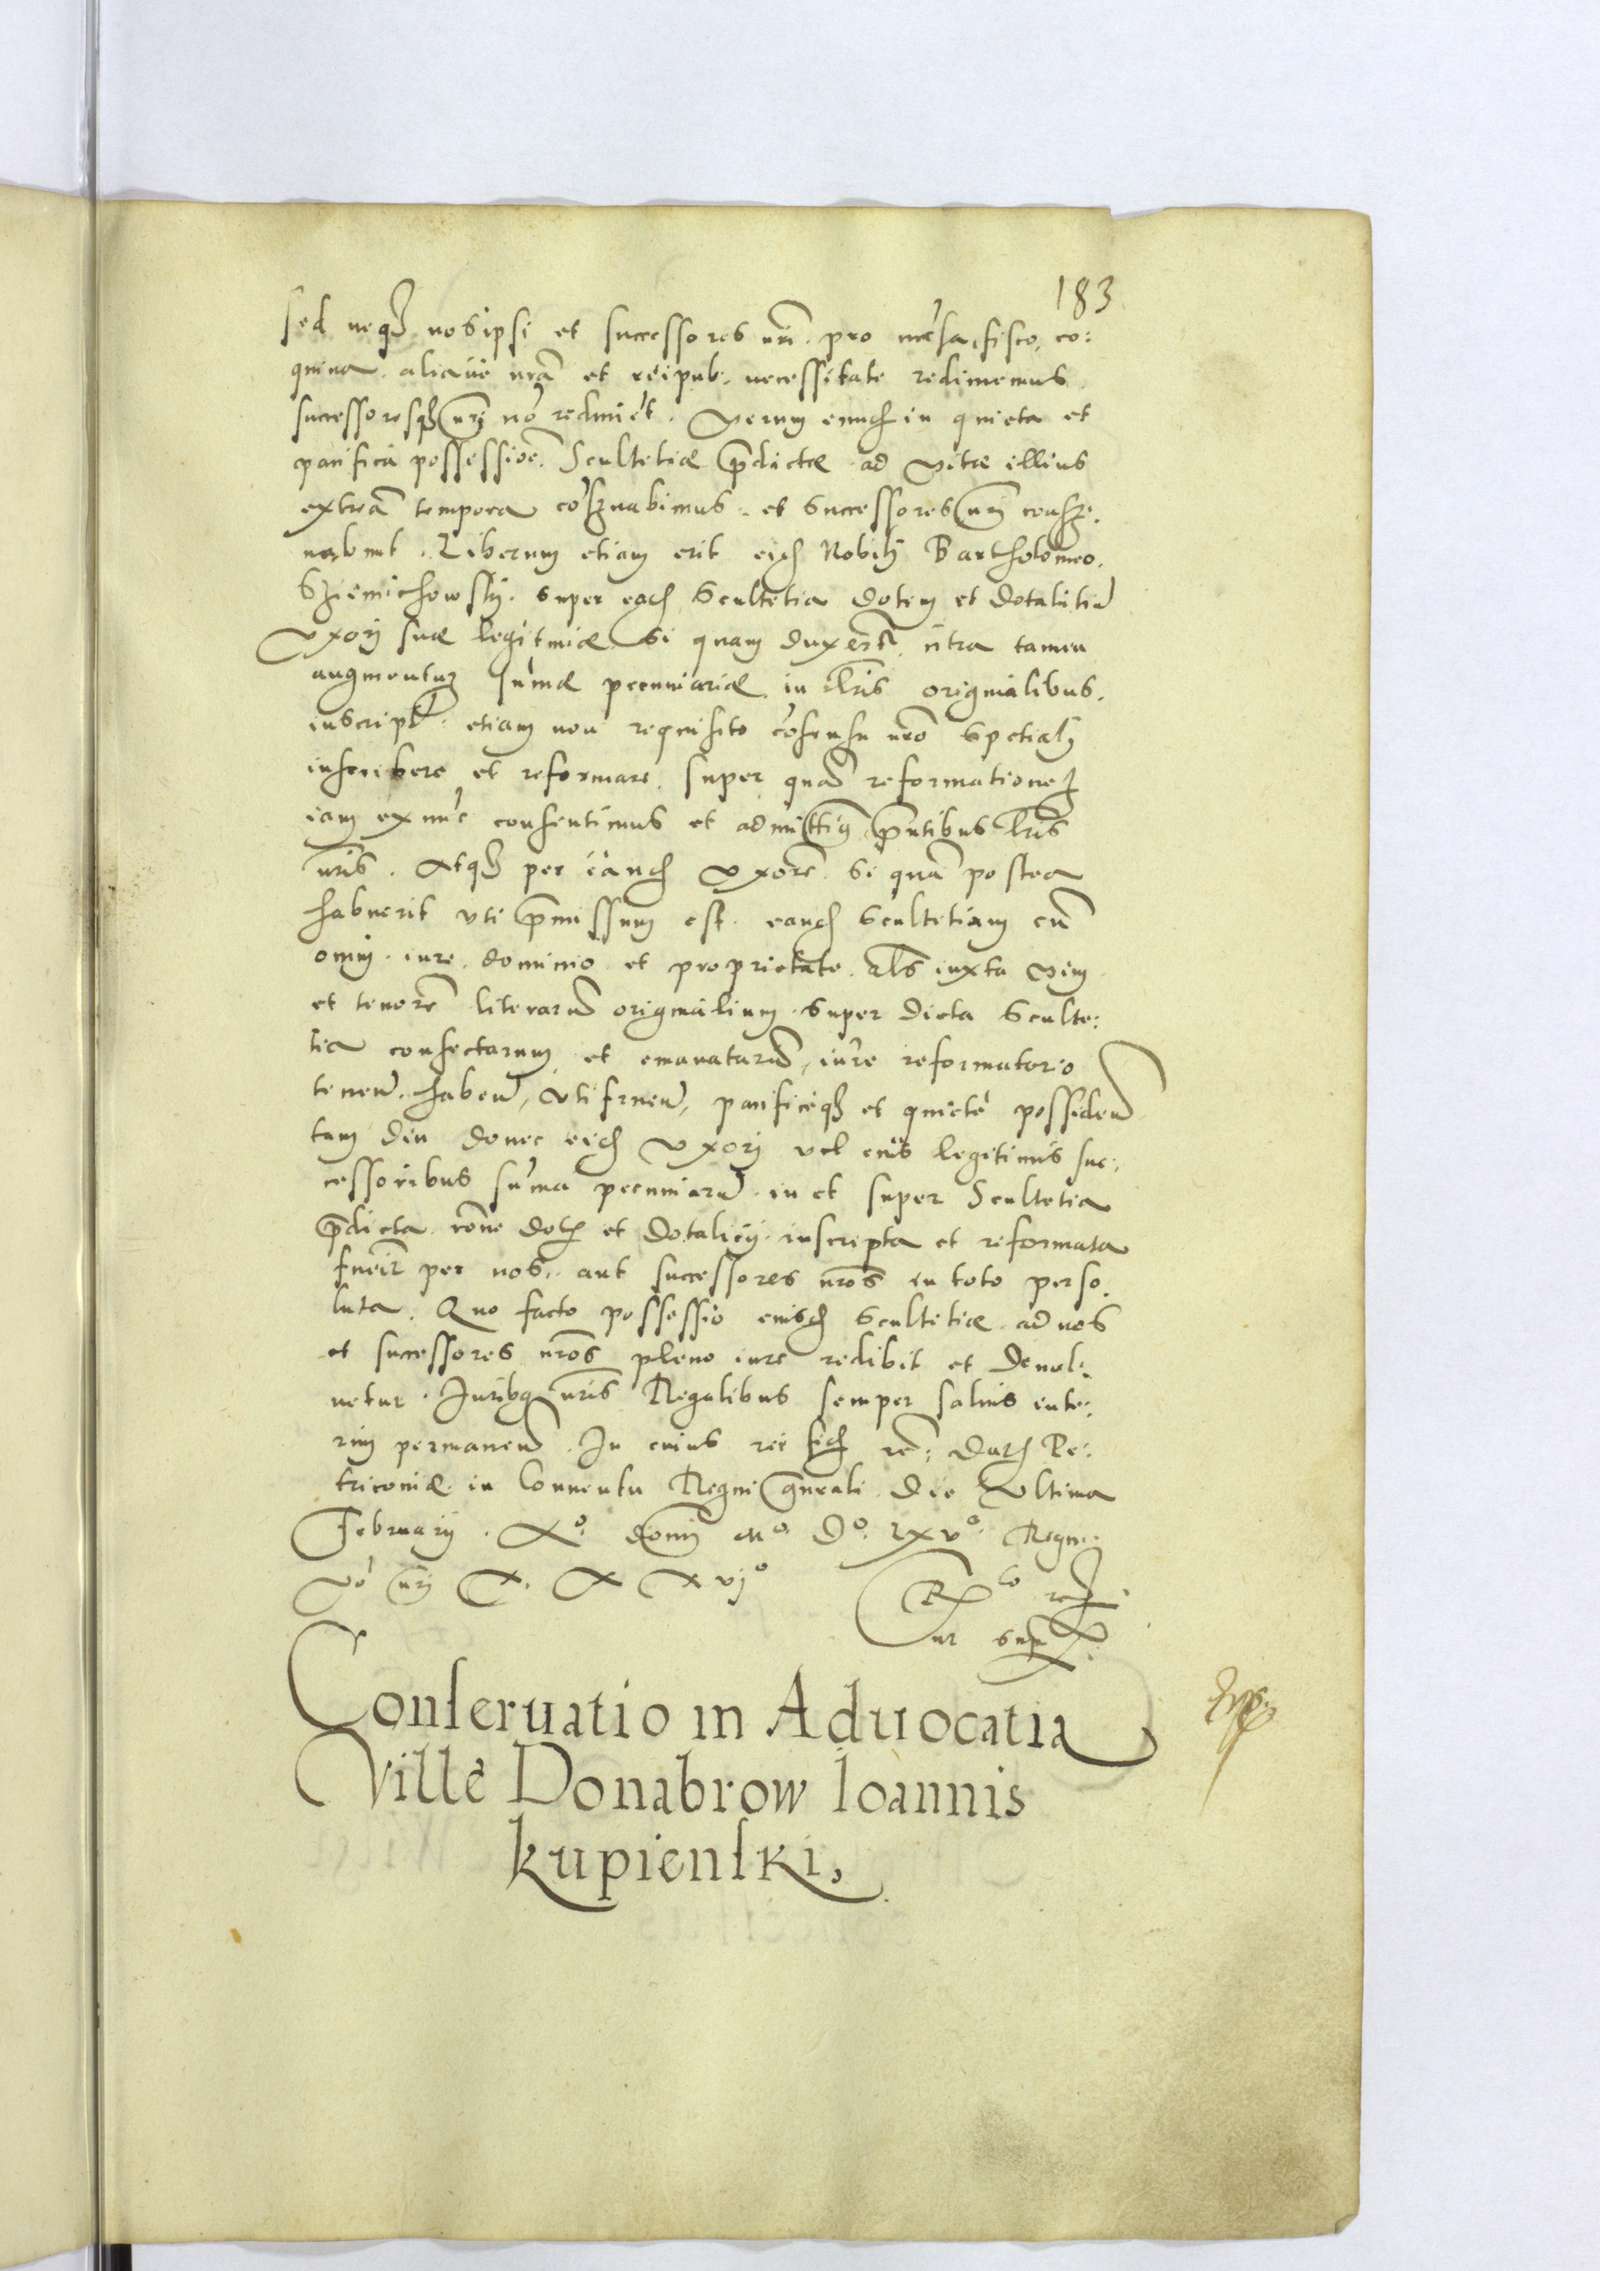 183
sed neq3 nos ipsi et successores nri pro mēsa, fisco, co:
quina aliaue nrā et reipub. necessitate redimemus
successoresq3 nri nō redimēt. Verum eund in quieta et
pacifica possessiōe Scultetiæ p̄dictæ ad vitæ illius
extrēa tempora cōseruabimus et successores nri conser:
uabunt. Liberum etiam erit eid Nobili Bartholomeo
super ead Scultetia dotem et dotalitiū
vxori suæ legitimæ si quam duxerit, citra tamen
augmentum sūmæ pecuniariæ in lris originalibus
inscript. etiam non requisito cōsensu nro spetiali
inscribere et reformare. super quā reformationem
iam ex nūc consentimus et admittim p̄ntibus lris
nris. Atq3 per eand vxorē si quā postea
habuerit vti p̄missum est. eand Scultetiam cū
omni iure dominio et proprietate als iuxta vim
et tenorē literarū originalium super dicta Sculte:
tia confectarum et emanatarū, iure reformatorio
tenen. haben, vtifruen, pacificeq3 et quiete possiden
tam diu donec eid vxori vel eius legitimis suc:
cessoribus sūma pecuniarū in et super Scultetia
p̄dicta rōne dotis et dotalicij inscripta et reformata
fuerit per nos, aut successores nros in toto perso:
luta. Quo facto possessio eiusd Scultetiæ ad nos
et successores nros pleno iure redibit et deuol:
uetur. Iuribq nris Regalibus semper saluis inte:
rim permanen. In cuius rei fid rē: Dat Pe:
triconiæ in Conuentu Regni gnrali die vltima
February. Aº domi Mº Dº Lxvº Regni
vō nri X X X vjº
Rlō
ut supra
Conseruatio in Aduocatia
Ville Donabrow Ioannis
kupienski,